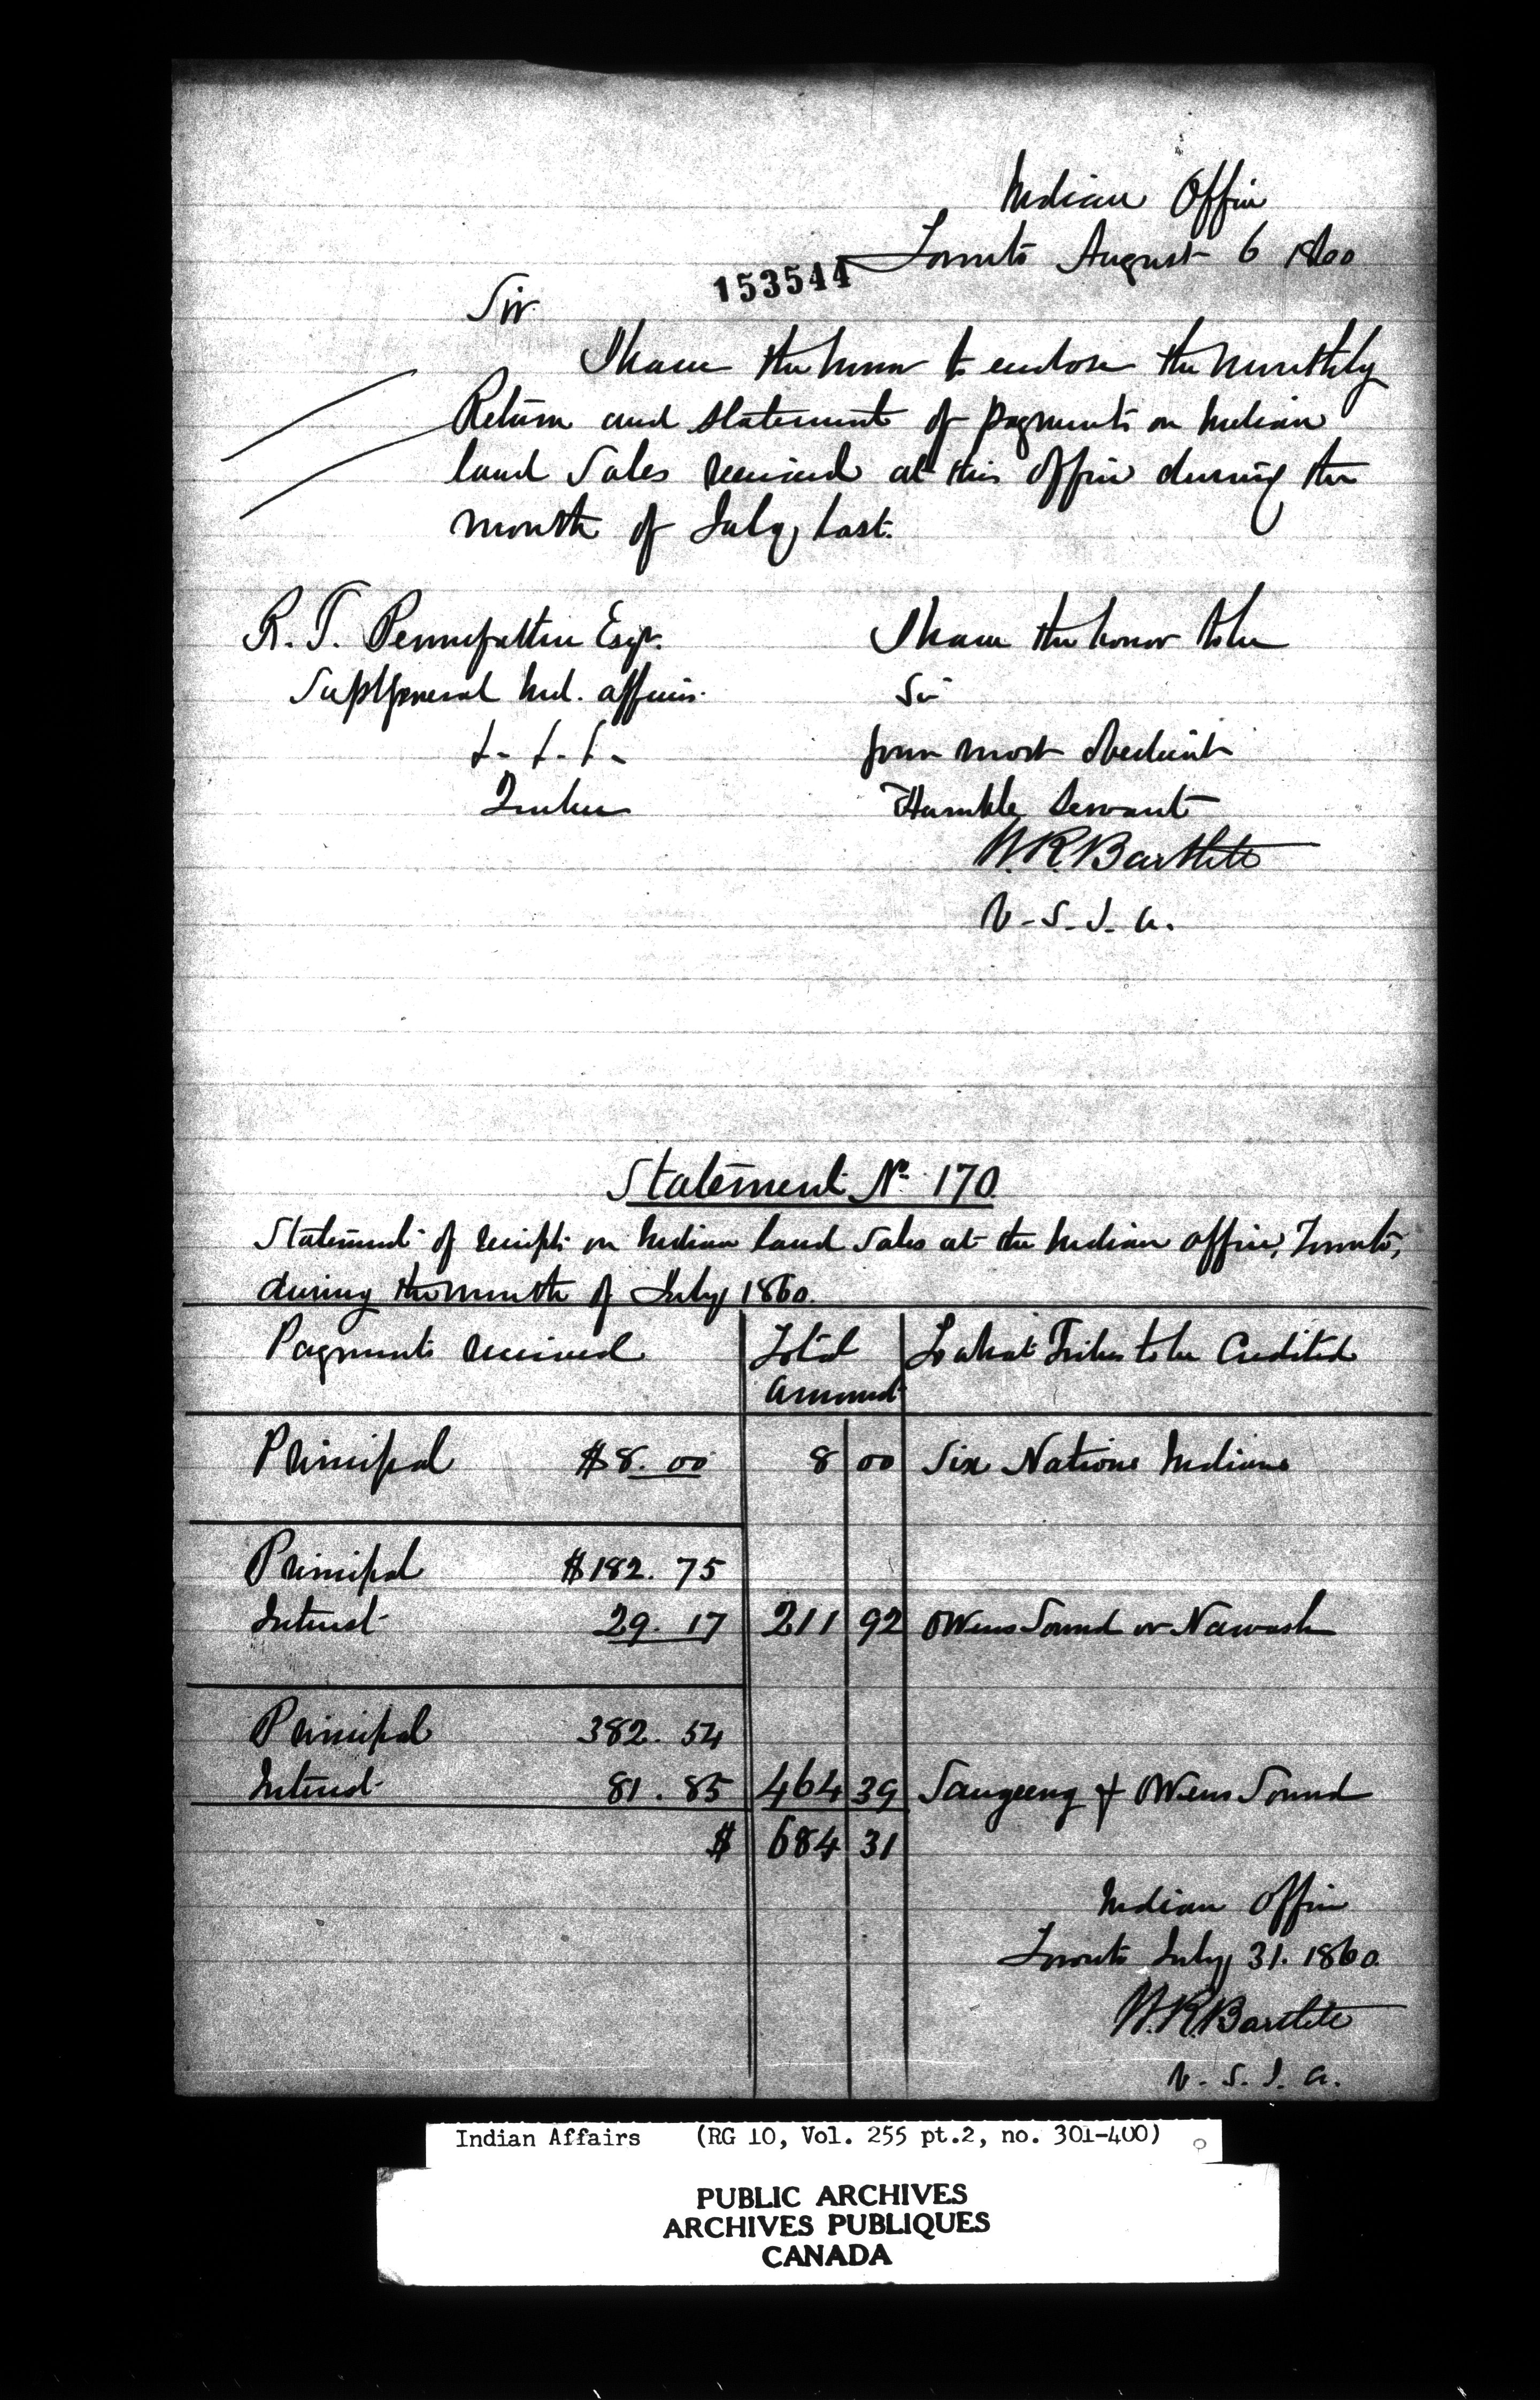 Indian Office
Toronto August 6 1860
153544
Sir
I have the honor to enclose the monthly
Return and statement of payments on Indian
land Sales received at this office during the
month of July last.
R. T. Pennefather Esqr.
Supt General Ind. affairs
&. &. &.
Quebec
I have the honor to be
Sir
your most obedient
Humble Servant
W. R. Bartlett
V. S. I. A.
Statement No. 170
Statement of receipts on Indian land Sales at the Indian office, Toronto,
during the month of July 1860.
Payments received Total To what Tribes to be Credited
amount
Principal $8. 00 8 00 Six Nations Indians
Principal $182. 75
Interest 29. 17 211 92 Owens Sound or Nawash
Principal 382. 54
Interest 81. 85 464 39 Saugeeng & Owens Sound
$ 684 31
Indian Office
Toronto July 31. 1860.
W. R. Bartlett
V. S. I. A.
Indian Affairs (RG 10, Vol. 255 pt.2, no. 301-400)
PUBLIC ARCHIVES
ARCHIVES PUBLIQUES
CANADA